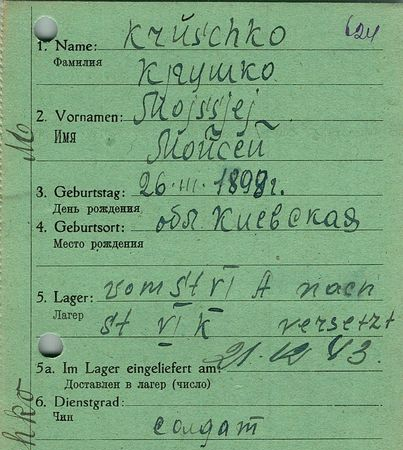 624
1. Name: Krüschko
Фамилия Крушко
2. Vornamen: Mojssjej
Имя Мойсей
3. Geburtstag: 26. III. 1898г.
День рождения
4. Geburtsort: обл. Киевская
Место рождения
5. Lager: vom St VI A nach
Лагер St VI K versetzt
5a. Im Lager eingeliefert am: 21. 43.
Доставлен в лагер (число)
6. Dienstgrad:
Чин солдат